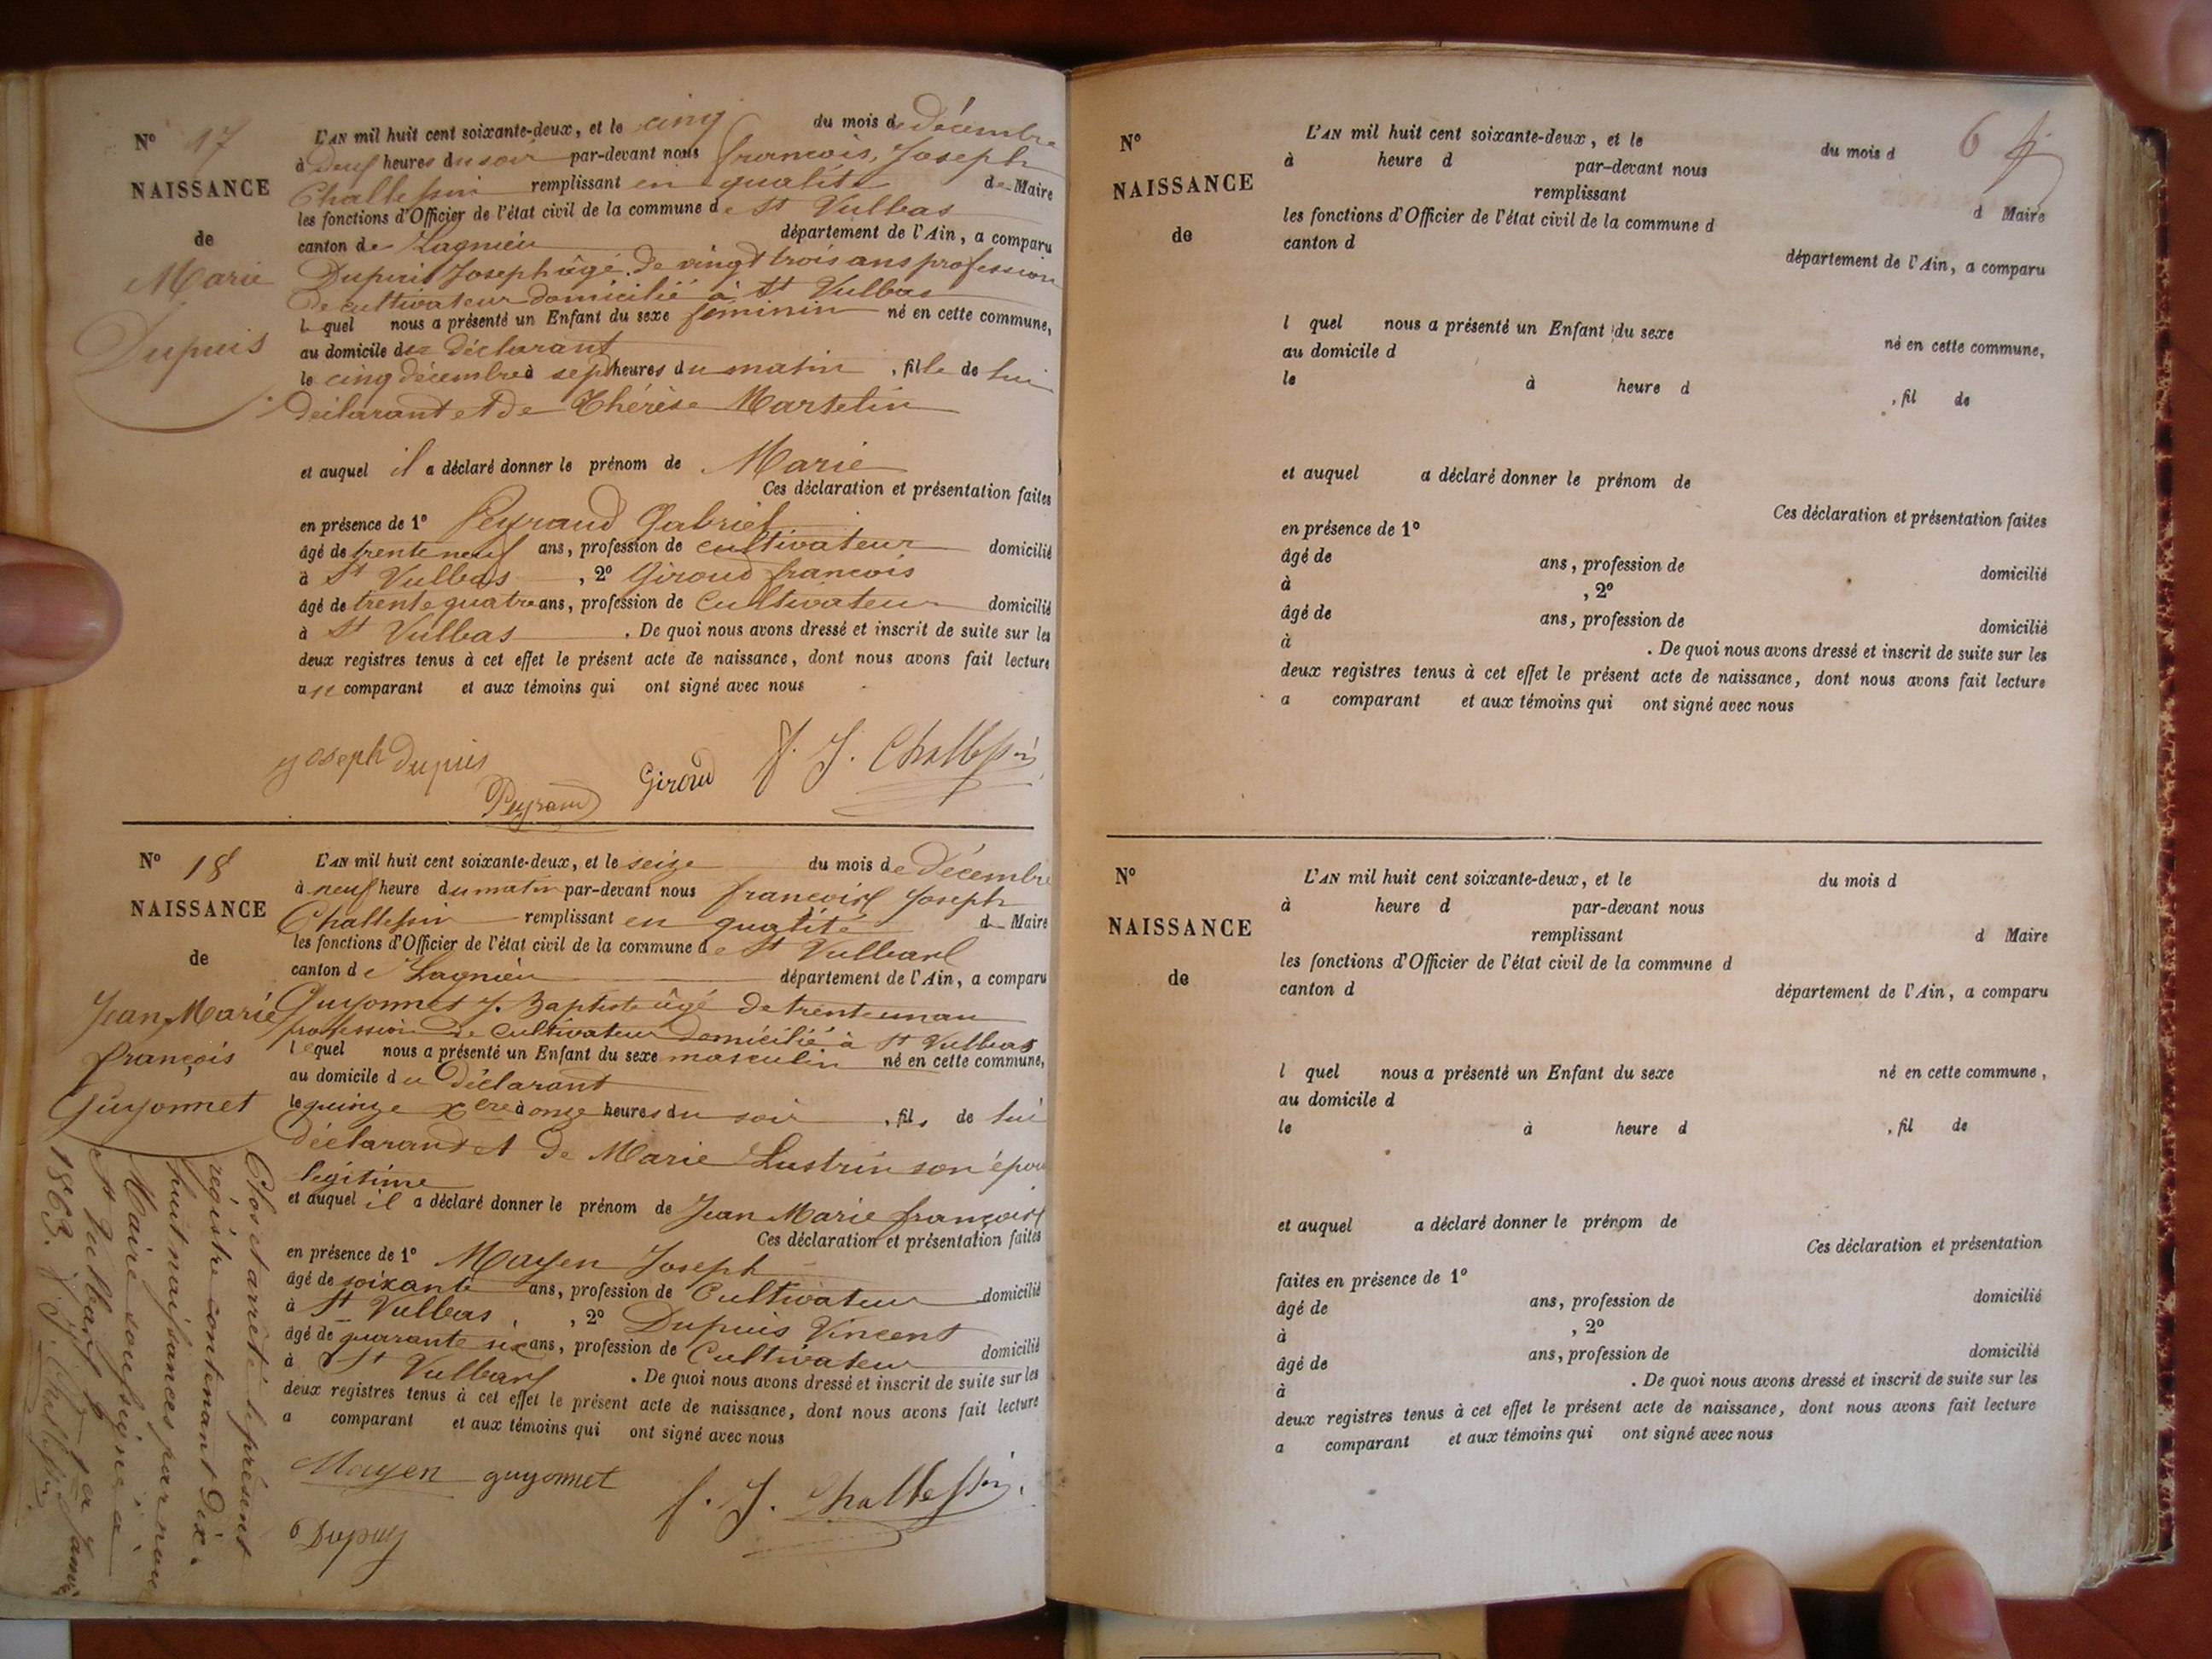 N° 17
NAISSANCE
de
Marie
Dupuis
L'AN mil huit cent soixante-deux, et le cinq du mois de décembre
à neuf heures du soir par-devant nous françois, Joseph
Challessin remplissant en qualité de Maire
les fonctions d'Officier de l'état civil de la commune de St Vulbas
canton de Lagnieu département de l'Ain, a comparu
Dupuis Joseph âgé de vingt trois ans profession
de cultivateur domicilié à St Vulbas
lequel nous a présenté un Enfant du sexe féminin né en cette commune,
au domicile du déclarant
le cinq décembre à sept heures du matin, fille de lui
déclarant et de Thérèse Marselin
et auquel il a déclaré donner le prénom de Marie
Ces déclaration et présentation faites
en présence de 1° Peyraud Gabriel
âgé de trente neuf ans, profession de cultivateur domicilié
à St Vulbas, 2° Giroud françois
âgé de trente quatre ans, profession de Cultivateur domicilié
à St Vulbas. De quoi nous avons dressé et inscrit de suite sur les
deux registres tenus à cet effet le présent acte de naissance, dont nous avons fait lecture
au comparant et aux témoins qui ont signé avec nous
Joseph Dupuis
Peyraud
Giroud
f. J. Challessin
N° 18
NAISSANCE
de
Jean, Marie
françois
Guyonnet
L'AN mil huit cent soixante-deux, et le seize du mois de Décembre
à neuf heure du matin par-devant nous françois Joseph
Challessin remplissant en qualité de Maire
les fonctions d'Officier de l'état civil de la commune de St Vulbas
canton de Lagnieu département de l'Ain, a comparu
Guyonnet J. Baptiste âgé de trente un an
profession de Cultivateur domicilié à St Vulbas
lequel nous a présenté un Enfant du sexe masculin né en cette commune,
au domicile du Déclarant
le quinze Xbre à onze heures du soir, fils de lui
déclarand et de Marie Lustrin son épou
légitime
et auquel il a déclaré donner le prénom de Jean Marie françois
Ces déclaration et présentation faites
en présence de 1° Mayen Joseph
âgé de soixante ans, profession de Cultivateur domicilié
à St Vulbas, 2° Dupuis Vincent
âgé de quarante six ans, profession de Cultivateur domicilié
à St Vulbas. De quoi nous avons dressé et inscrit de suite sur les
deux registres tenus à cet effet le présent acte de naissance, dont nous avons fait lecture
a comparant et aux témoins qui ont signé avec nous
Mayen guyonnet f. J. Challessin
Dupuis
Clos et arrêté le présent
registre contenant Dix
huit naissances par nous
Maire soussigné à
St Vulbas le janvier
1863. f. J. Challessin
6
N°
NAISSANCE
de
L'AN mil huit cent soixante-deux, et le du mois d
à heure d par-devant nous
remplissant d Maire
les fonctions d'Officier de l'état civil de la commune d
canton d département de l'Ain, a comparu
l quel nous a présenté un Enfant du sexe né en cette commune,
au domicile d
le à heure d , fil de
et auquel a déclaré donner le prénom de
Ces déclaration et présentation faites
en présence de 1°
âgé de ans, profession de domicilié
à , 2°
âgé de ans, profession de domicilié
à . De quoi nous avons dressé et inscrit de suite sur les
deux registres tenus à cet effet le présent acte de naissance, dont nous avons fait lecture
a comparant et aux témoins qui ont signé avec nous
N°
NAISSANCE
de
L'AN mil huit cent soixante-deux, et le du mois d
à heure d par-devant nous
remplissant d Maire
les fonctions d'Officier de l'état civil de la commune d
canton d département de l'Ain, a comparu
l quel nous a présenté un Enfant du sexe né en cette commune,
au domicile d
le à heure d , fil de
et auquel a déclaré donner le prénom de
Ces déclaration et présentation
faites en présence de 1°
âgé de ans, profession de domicilié
à , 2°
âgé de ans, profession de domicilié
à . De quoi nous avons dressé et inscrit de suite sur les
deux registres tenus à cet effet le présent acte de naissance, dont nous avons fait lecture
a comparant et aux témoins qui ont signé avec nous